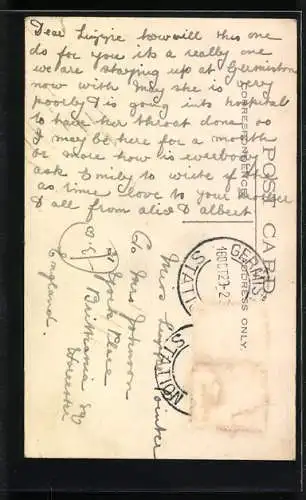 Dear Lizzie how will this one
do for you its a really one
we are staying up at Germiston
now with May she is very
poorly & is going into hospital
to have her throat done so
I may be here for a month
or more how is everbody
ask Emily to write if she
as time love to your mother
& all from alice & albert
POST CARD
CORRESPONDENCE
ADDRESS ONLY.
GERMISTON
STATION
STATION
Miss Lizzie
C/o Mrs Johnson
York Place
Brittania Sq
Worcester
England.